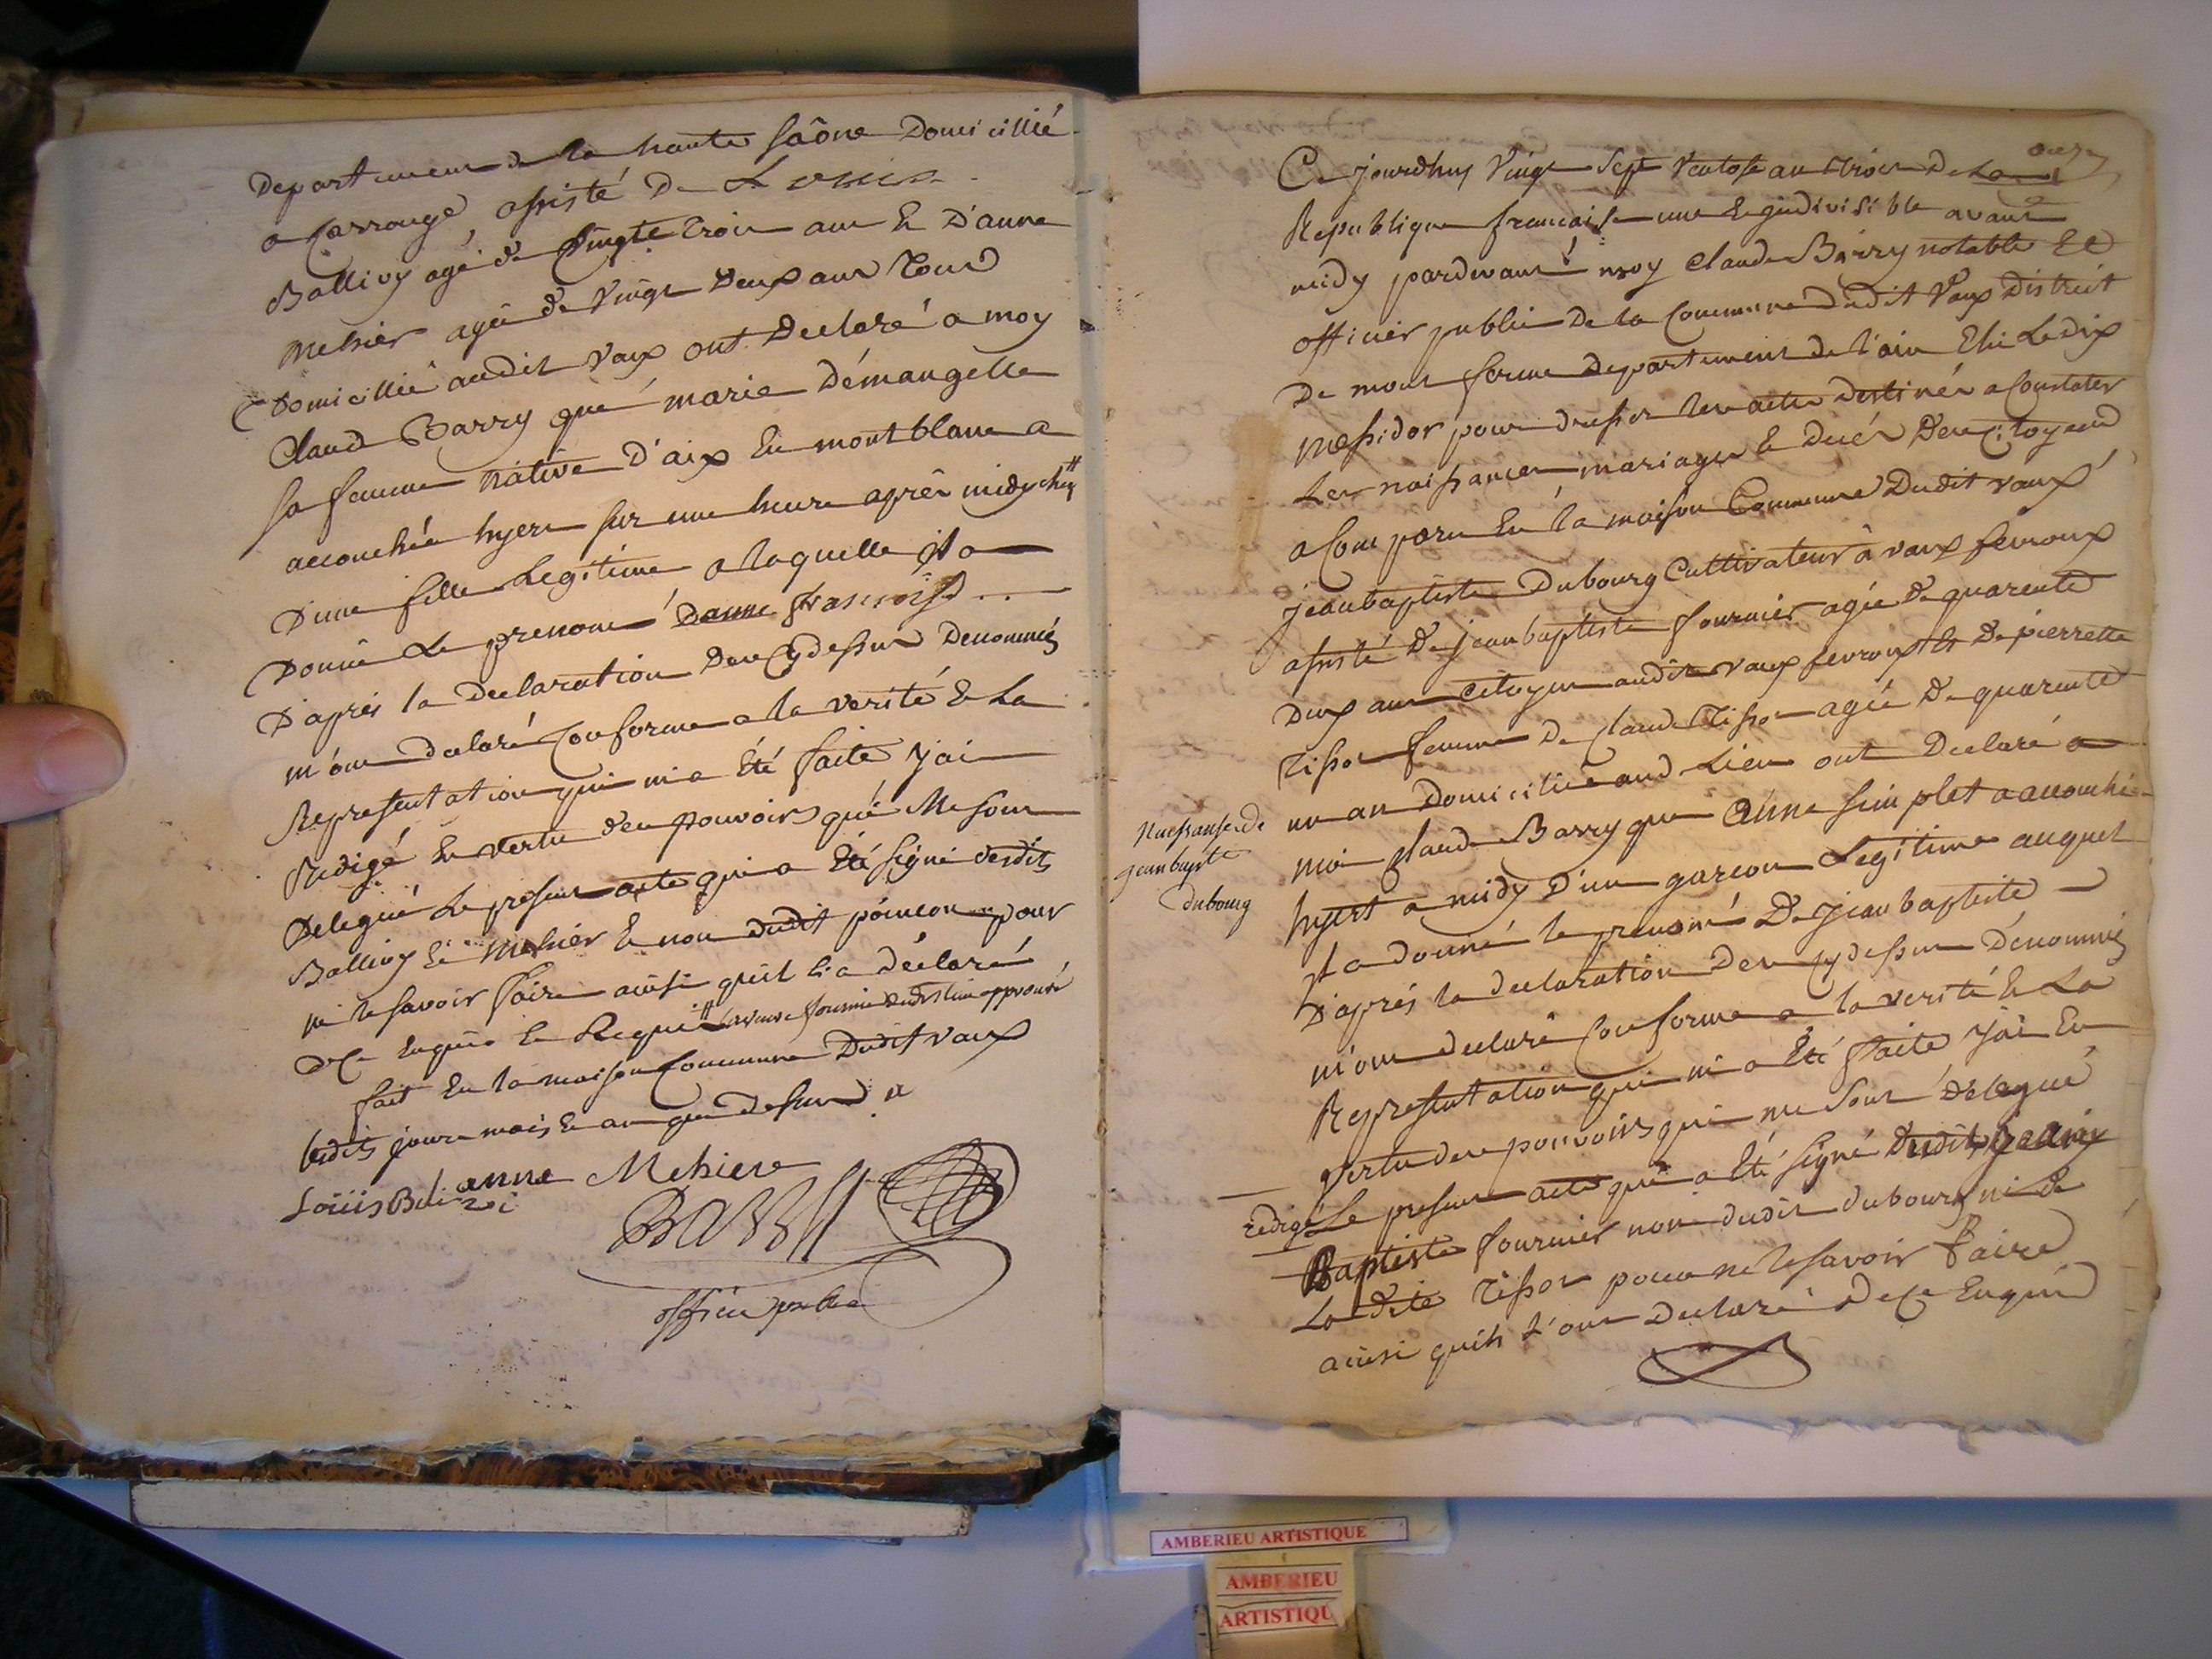 Departement de la haute Saône Domicillié
a Carrouge, assisté De Louis
Ballivoy agé de vingte trois ans & D'anne
Mehier agée de vingt Deux ans Tous
Domicillié audit Vaux ont Declaré a moy
Claud Barry que marie Démangelle
sa femme native D'aix En montblanc a
accouchée hyers sur une heure après midy chez
D'une fille Legitime a laquelle il a
Donné Le prenom D'anne françoise
D'après la Declaration Des Cydessus Denommés
m'ont declaré Conforme a la verité & La
Representation qui m'a Eté faite j'ai
Redigé En vertu des pouvoirs qui Me sont
Delegué Le present acte qui a Eté signé desdits
Ballivoy & Mehier & non dudit poincon pour
ne le savoir faire ainsi quil l'a déclaré
de ce Enquis & Requis
fait En la maison Commune Dudit vaux
lesdits jour mois & an que dessus
anne Mehiere
Loüis Balivoi
Barry
officie public
onze
Ce jourdhuy Vingt Sept Ventose an trois De La
Republique francaise une & jndivisible avant
midy pardevant moy Claude Barry notable Et
officier public De la Commune Dudit Vaux District
De mont ferme departement de l'ain Elu Le dix
Messidor pour dresser les actes destinés a Constater
Les naissances mariages & decés Des Citoyens
a Comparu En la maison Commune Dudit vaux
jeanbaptiste Dubourg Cultivateur à vaux fevroux
assisté De jeanbaptiste fournier agée De quarente
Deux ans Citoyen audit vaux fevroux & De pierrette
Tissot femme De Claude Tissot agée De quarente
un an Domicilié aud. Lieu ont Declaré a
moi Claude Barry que Anne Simplet a accouché
hyert a midy D'un garcon Legitime auquel
jl a donné le prenom De jean baptiste
D'après la declaration Des Cydessus Dénommés
m'ont declaré Conforme a la verité & La
Representation qui m'a Eté faite j'ai En
vertu des pouvoirs qui me sont délegué
redigé Le present acte qui a Eté signé dudit jean
Baptiste fournier non dudit dubourg ni de
La dite Tissot pour ne le savoir faire
ainsi quils l'ont Declaré de ce Enquis
Naissanse de
jean bapte
dubourg
AMBERIEU ARTISTIQUE
AMBERIEU
ARTISTIQU